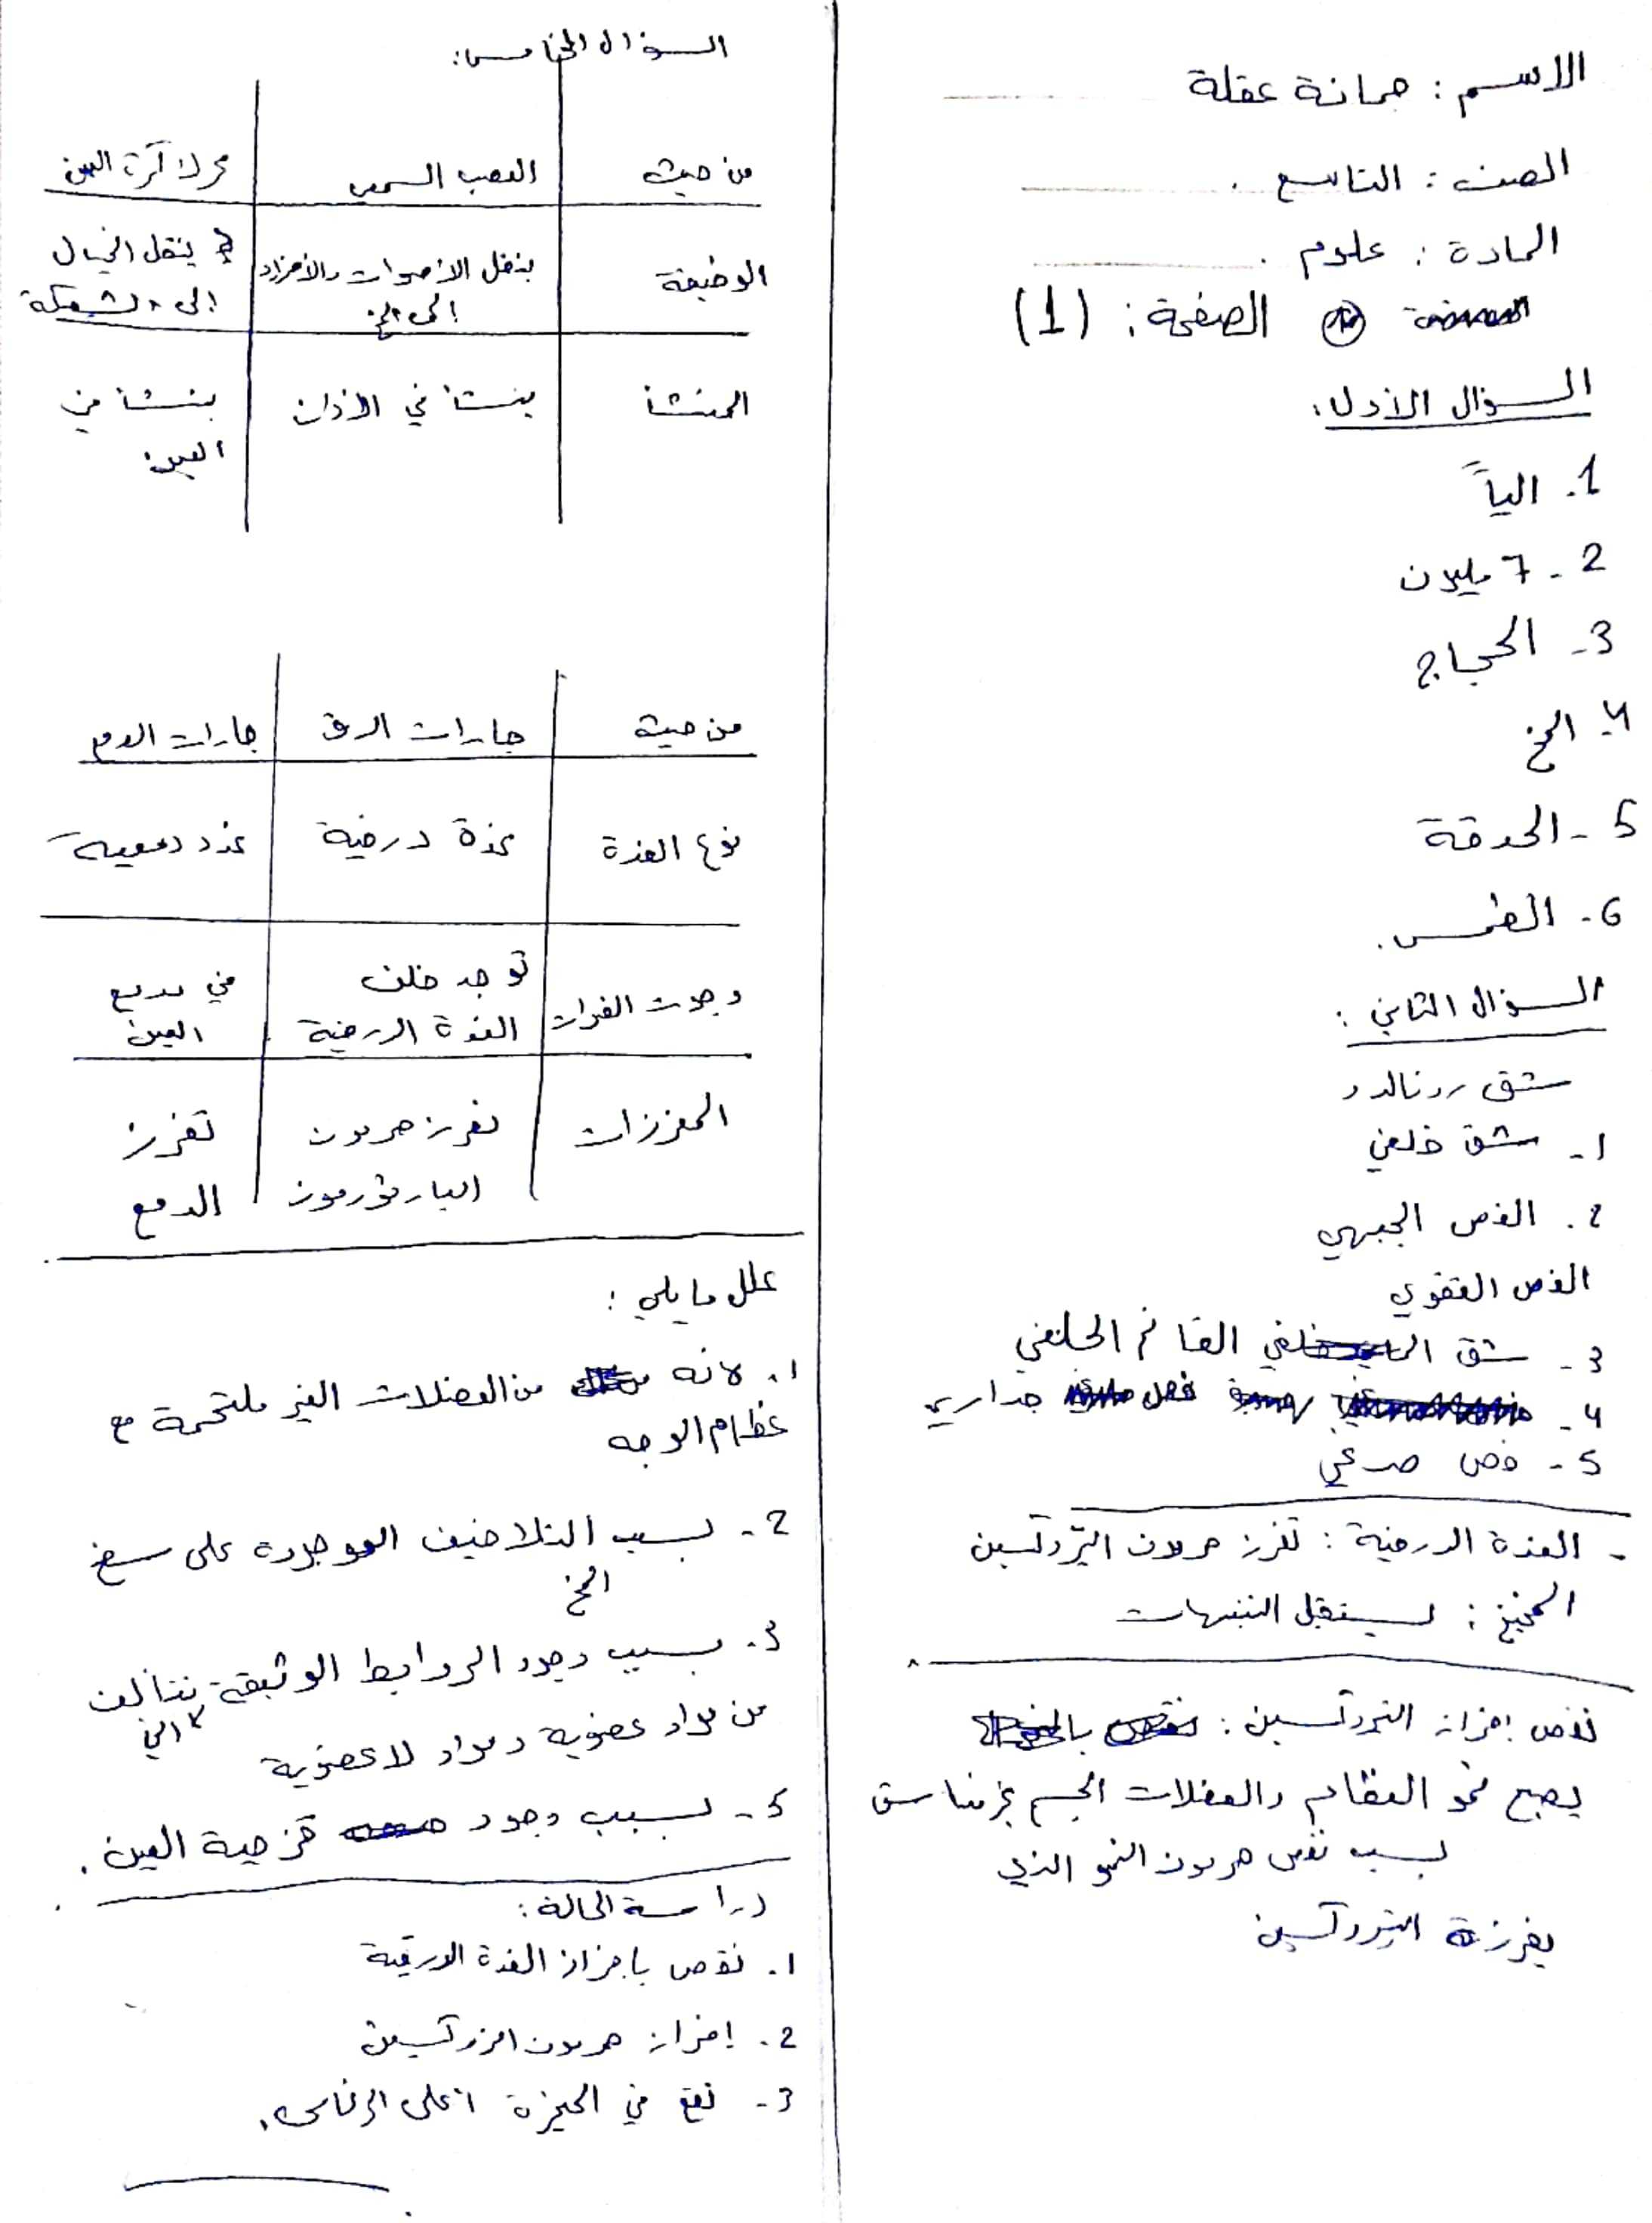 الاسم : جمانة عقلة
الصف : التاسع .
المادة : علوم .
الصفحة : (1)
السؤال الأول :
1. الياً
2 - 7 مليون
3 - الحجاج
4 - المخ
5 - الحدقة
6 - الطمس .
السؤال الثاني :
شق رونالدو
1 - شق خلفي
2 . الفص الجبهي
الفص القفوي
3 - شق القائم الخلفي
4 - فص جداري
5 - فص صدغي
- الغدة الدرقية : تفرز هرمون التيروكسين
المخيخ : يستقبل التنبيهات
نقص إفراز التيروكسين :
يصبح نمو العظام والعضلات الجسم غير متناسق
بسبب نقص هرمون النمو الذي
يفرزة التيروكسين
السؤال الخامس :
من حيث | العصب السمعي | محرك كرة العين
الوظيفة | ينقل الأصوات والأفراد | ينقل الخيال
إلى المخ | إلى الشبكة
المنشأ | ينشأ في الأذان | ينشأ في
العين
من حيث | جارات الدرق | جارات الدمع
نوع الغدة | غدة درقية | غدد دمعية
وجود الغدات | توجد خلف | في مدمع
الغدة الدرقية | العين
المفرزات | تفرز هرمون | تفرز
الباراثورمون | الدمع
علل ما يلي :
1. لانه من العضلات الغير ملتحمة مع
عظام الوجه
2 - بسبب التلافيف الموجودة على سطح
المخ
3 - بسبب وجود الروابط الوثيقة التي تتألف
من مواد عضوية ومواد لا عضوية
5 - بسبب وجود قزحية العين .
دراسة الحالة :
1. نقص بافراز الغدة الدرقية
2 . إفراز هرمون التيروكسين
3 - تقع في الحيزة أعلى الرغامى .